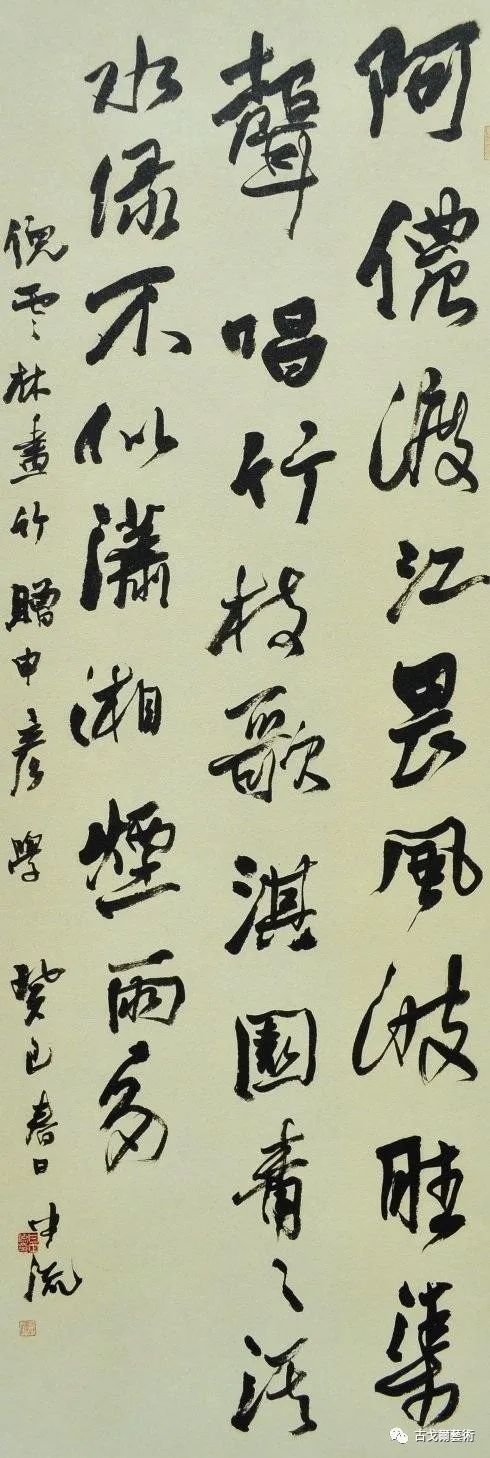 阿儂渡江畏風波聽渠
聲唱竹枝歌淇園青々淇
水綠不似瀟湘煙雨多
倪雲林畫竹贈申彥學 癸巳春日 中流
古戈爾藝術